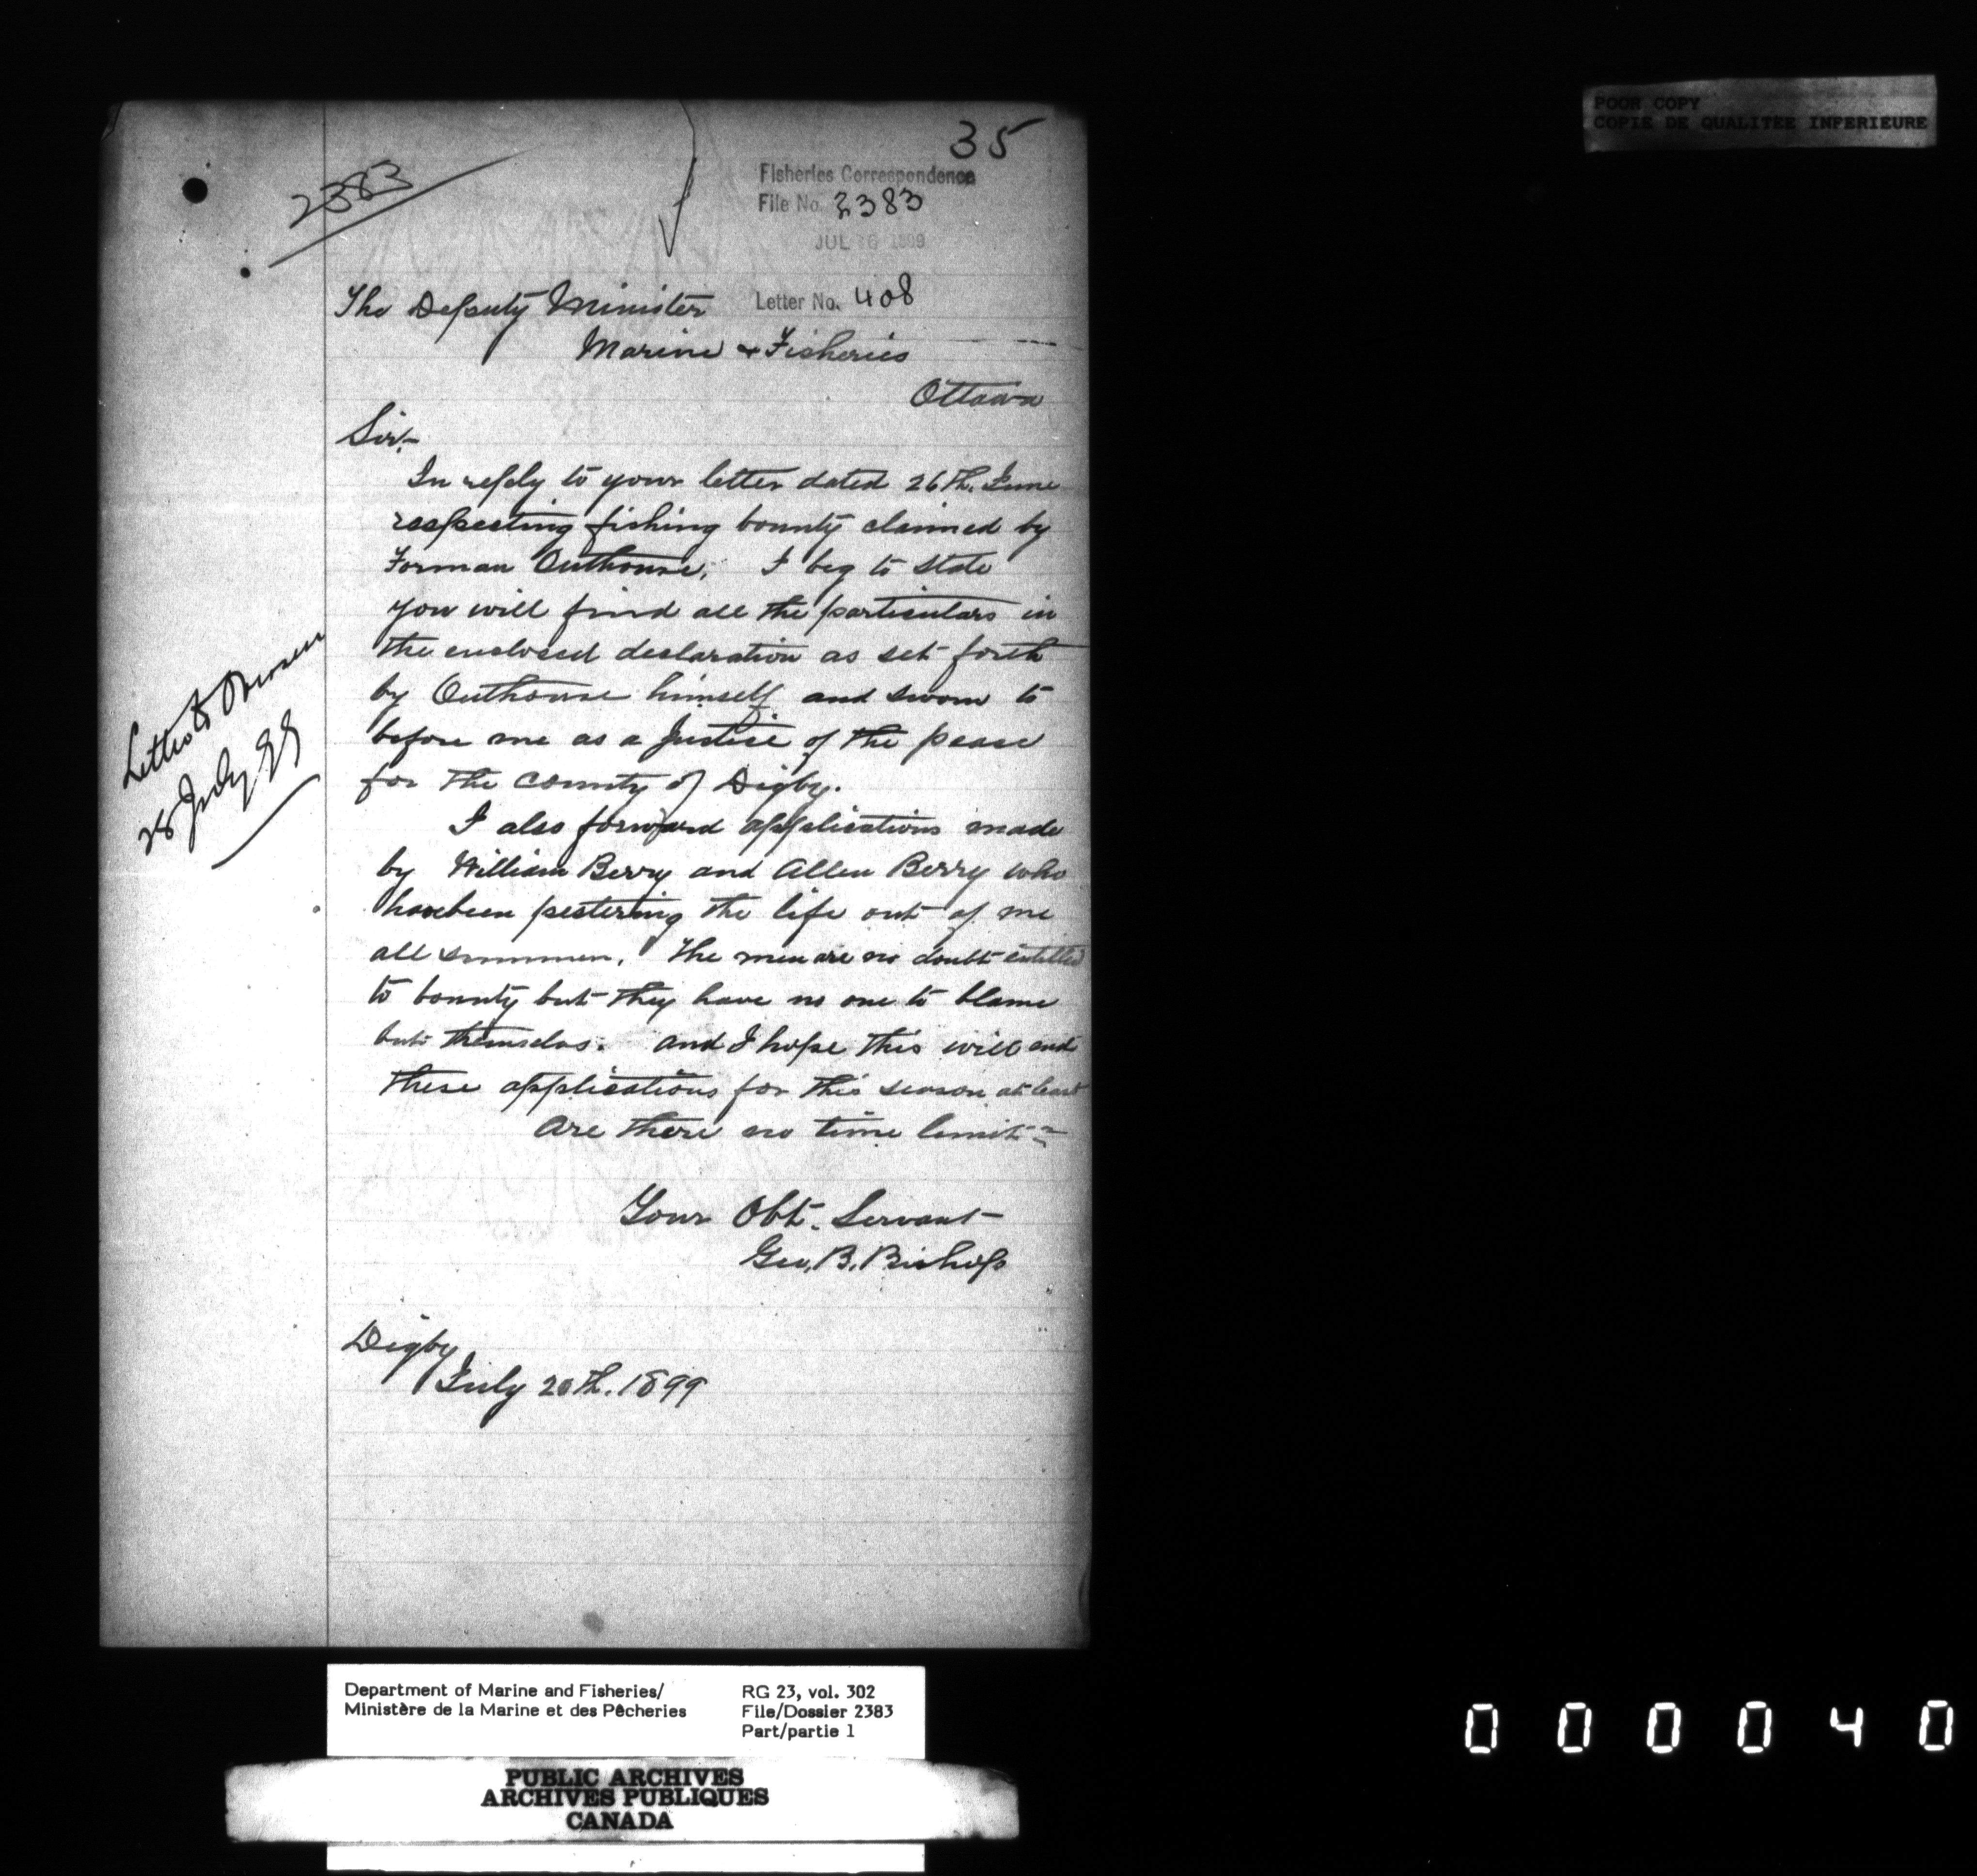 POOR COPY
COPIE DE QUALITEE INFERIEURE
35
2383
Fisheries Correspondence
File No. 2383
JUL 1899
Letter No. 408
The Deputy Minister
Marine & Fisheries
Ottawa
Sir,-
In reply to your letter dated 26th. June
respecting fishing bounty claimed by
Forman Outhouse, I beg to state
you will find all the particulars in
the enclosed declaration as set forth
by Outhouse himself and sworn to
before me as a Justice of the peace
for the County of Digby.
I also forward applications made
by William Berry and Allen Berry who
have been pestering the life out of me
all summer. The men are no doubt entitled
to bounty but they have no one to blame
but themselvs. and I hope this will end
these applications for this season at least
Are there no time limit?
Your Obt. Servant
Geo. B. Bishop
Digby
July 20th. 1899
Letter to
28 July 99
Department of Marine and Fisheries/
Ministère de la Marine et des Pêcheries
RG 23, vol. 302
File/Dossier 2383
Part/partie 1
PUBLIC ARCHIVES
ARCHIVES PUBLIQUES
CANADA
000040